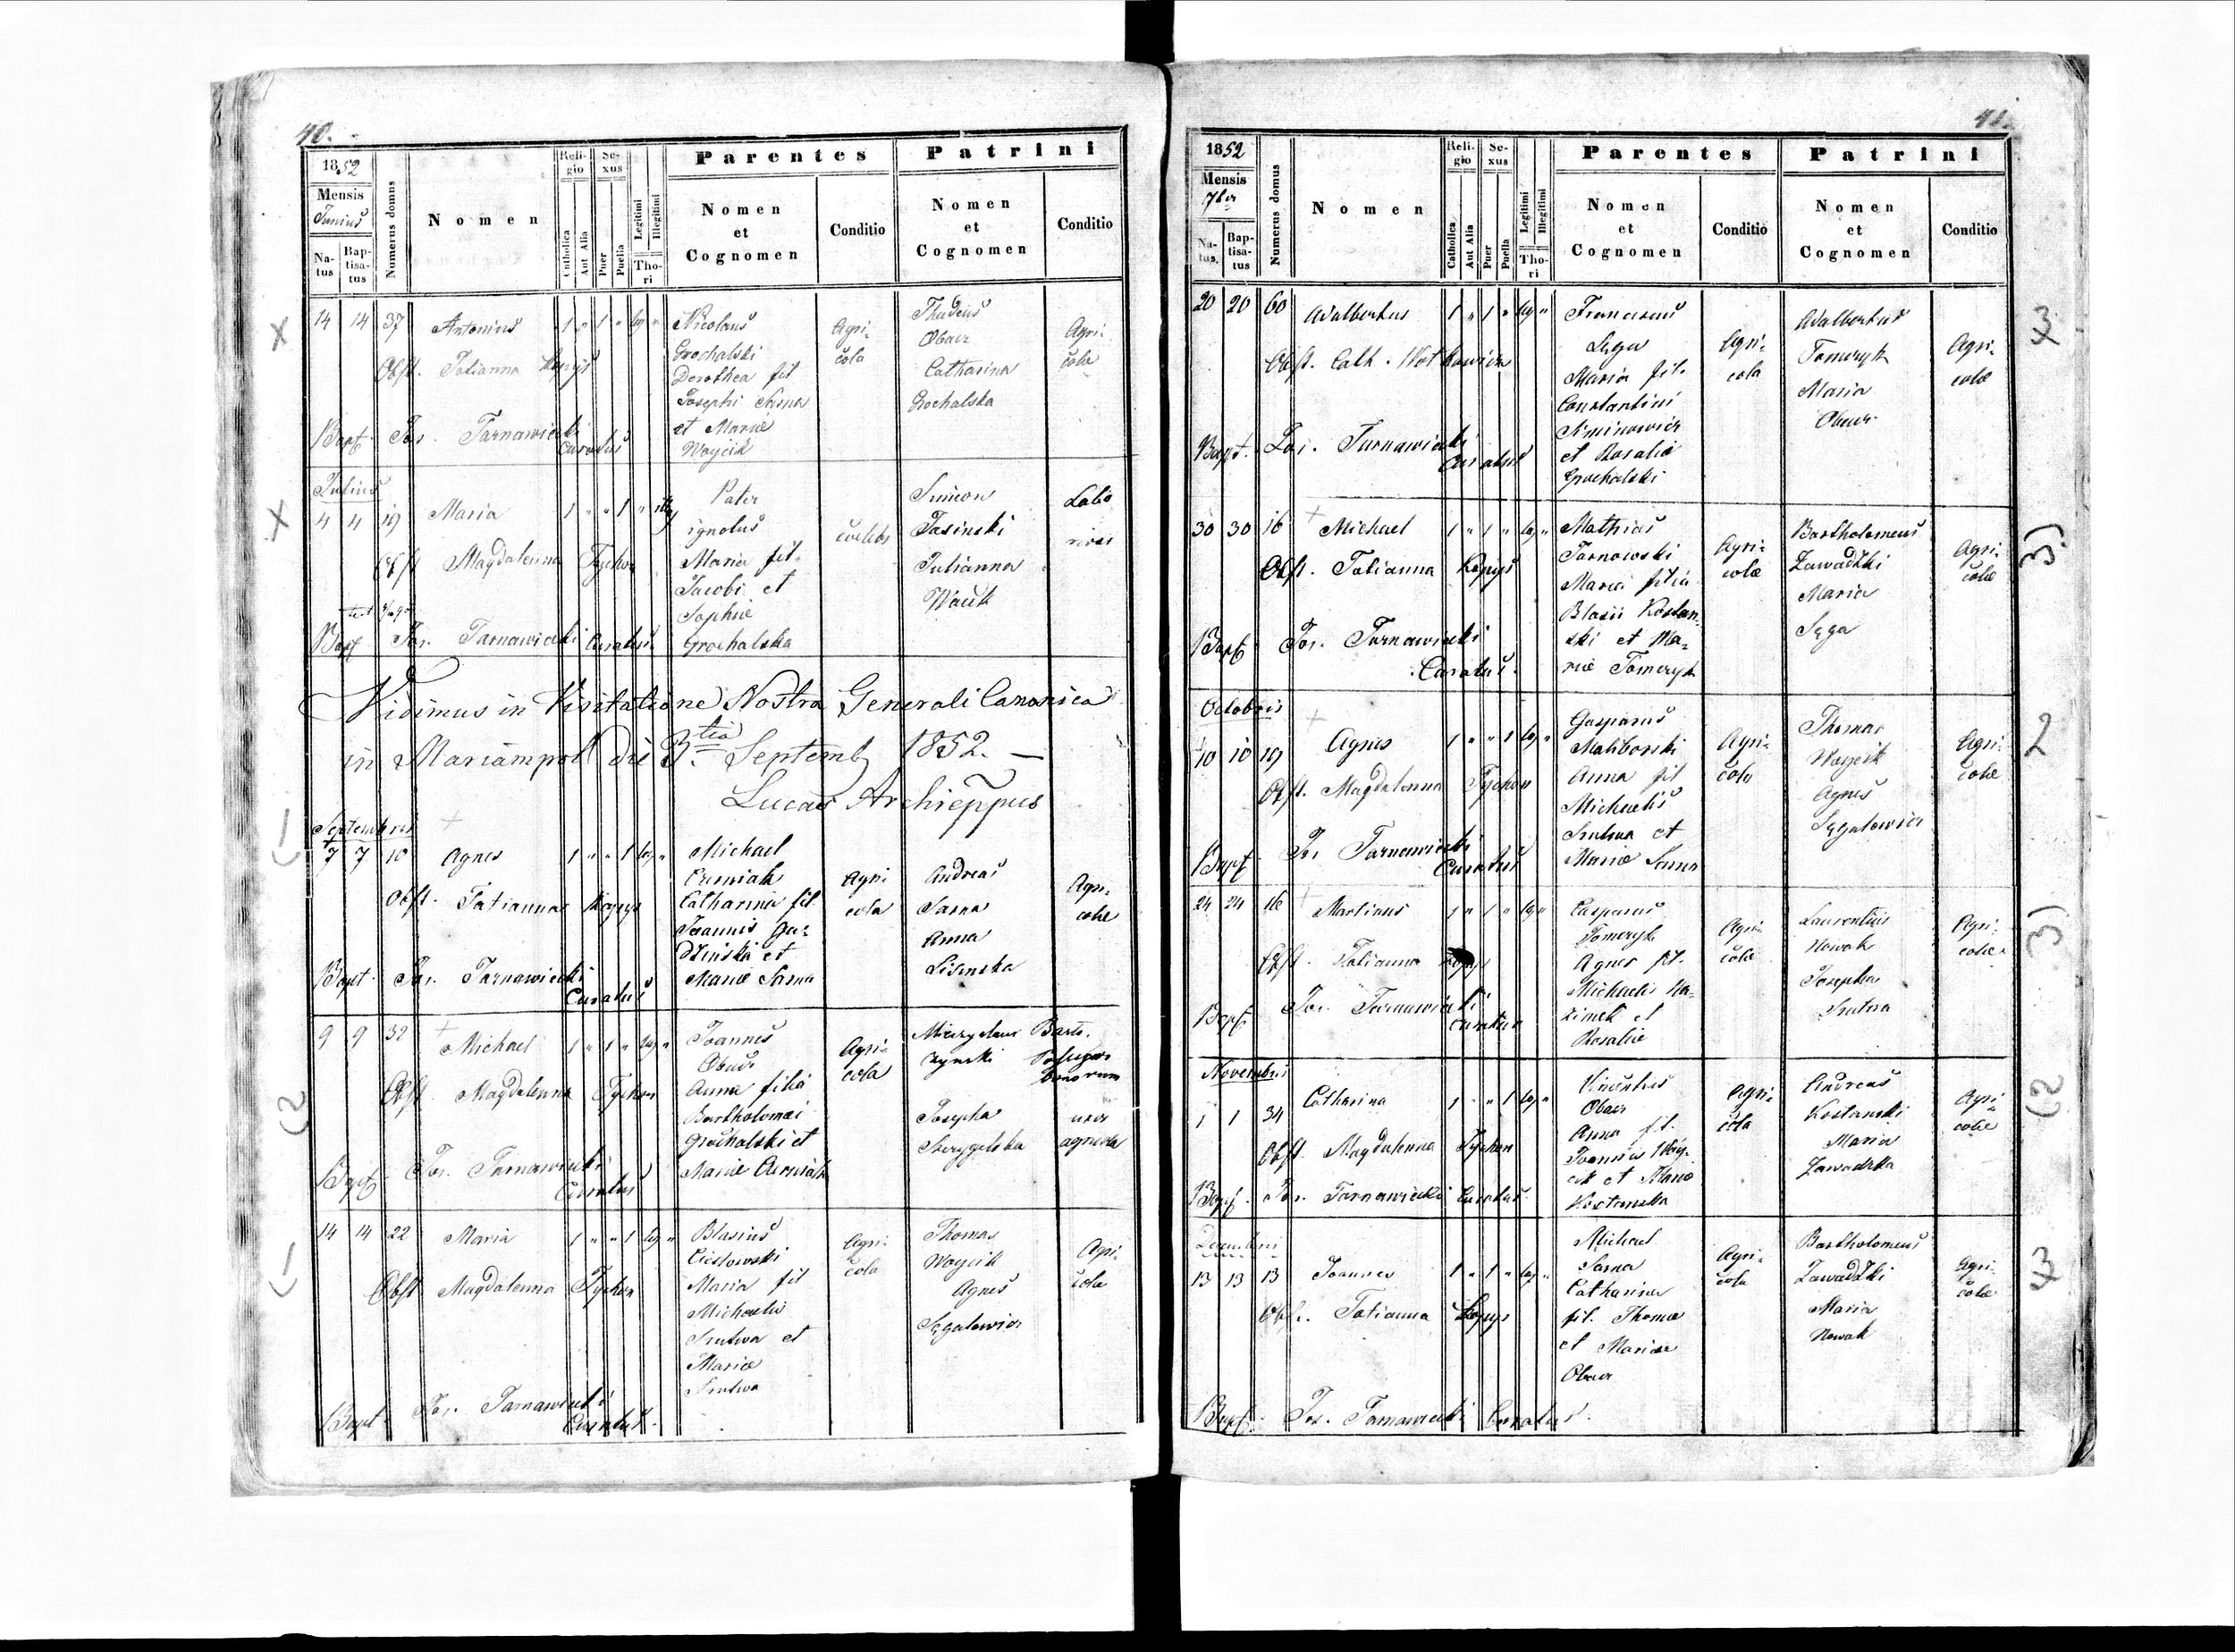 40.
1852
Mensis
Junius
Na-
tus
Bap-
tisa-
tus
Numerus domus
Nomen
Reli-
gio
Catholica
Aut Alia
Se-
xus
Puer
Puella
Legitimi
Illegitimi
Tho-
ri
Parentes
Nomen
et
Cognomen
Conditio
Patrini
Nomen
et
Cognomen
Conditio
14 14 37 Antonius 1 " 1 " leg "
Obst. Tatianna Kopys
Bapt. Jos. Tarnawiecki
Curatus
Nicolaus
Grochalski
Dorothea fil
Josephi Sarna
et Mariae
Woycik
Agri-
cola
Obacz
Catharina
Grochalska
Agri-
colae
Julius
4 4 19 Maria 1 " " 1 "
Obst Magdalenna Tychon
Bapt Jos. Tarnawiecki Curatus
Pater
ignotus
Maria fil.
Jacobi et
Sophiae
Grochalska
Simeon
Jasinski
Julianna
Labo
Vidimus in Visitatione Nostra Generali Canonica
in Mariampol die 3tia Septemb 1852. —
Lucas Archieppus
Septembris
7 7 10 Agnes 1 " " 1 leg "
Obst. Tatianna Kopys
Bapt. Jos. Tarnawiecki
Curatus
Michael
Catharina fil.
Joannis Gu-
dzinski et
Mariae Sarna
Agri
cola
Andreas
Sarna
Anna
Agri-
colae
9 9 32 Michael 1 " 1 " leg "
Obst Magdalenna Tychon
Bapt. Jos. Tarnawiecki
Curatus
Joannes
Obacz
Anna filia
Bartholomaei
Grochalski et
Mariae
Agri-
cola
Josepha
uxor
bonorum
14 14 22 Maria 1 " " 1 leg "
Obst Magdalenna Tychon
Bapt Jos. Tarnawiecki
Curatus.
Blasius
Cieslowski
Maria fil
Michaelis
Srutwa et
Mariae
Srutwa
Agri-
cola
Thomas
Woycik
Agnes
Sęgalowicz
Agri-
cola
41.
1852
Mensis
7bris
Na-
tus.
Bap-
tisa-
tus
Numerus domus
Nomen
Reli-
gio
Catholica
Aut Alia
Se-
xus
Puer
Puella
Legitimi
Illegitimi
Tho-
ri
Parentes
Nomen
et
Cognomen
Conditio
Patrini
Nomen
et
Cognomen
Conditio
20 20 60 Adalbertus 1 " 1 " leg "
Obst. Cath.
Bapt. Jos. Tarnawiecki
Curatus
Franciscus
Sęga
Maria fil.
Constantini
et Rosalia
Grochalski
Agri-
cola
Adalbertus
Tomczyk
Maria
Obacz
Agri-
colae
30 30 16 Michael 1 " 1 " leg "
Obst. Tatianna Kopys
Bapt Jos. Tarnawiecki
Curatus.
Mathias
Tarnowski
Maria filia
Blasii Kostan-
ski et Ma-
riae Tomczyk
Agri-
colae
Bartholomeus
Zawadzki
Maria
Sęga
Agri-
colae
Octobris
10 10 19 Agnes 1 " " 1 leg "
Obst. Magdalenna Tychon
Bapt Jos Tarnawiecki
Curatus
Gasparus
Maliborski
Anna fil
Michaelis
Srutwa et
Mariae Sarna
Agri-
cola
Thomas
Woycik
Agnes
Sęgalowicz
Agri-
colae
24 24 16 Martinus 1 " 1 " leg "
Obst. Tatianna Kopys
Bapt Jos. Tarnawiecki
Curatus
Casparus
Tomczyk
Agnes fil.
Michaelis Ka-
zimek et
Rosaliae
Agri-
cola
Laurentius
Nowak
Josepha
Srutwa
Agri-
colae
Novembris
1 1 34 Catharina 1 " " 1 leg "
Obst. Magdalenna Tychon
Bapt. Jos. Tarnawiecki Curatus
Vincentius
Obacz
Anna fil.
Joannis Woy-
cik et Mariae
Kostanska
Agri-
cola
Andreas
Kostanski
Maria
Zawadzka
Agri-
colae
Decembris
13 13 13 Joannes 1 " 1 " leg "
Obst. Tatianna Kopys
Bapt. Jos. Tarnawiecki Curatus.
Michael
Sarna
Catharina
fil. Thomae
et Mariae
Obacz
Agri-
cola
Bartholomeus
Zawadzki
Maria
Nowak
Agri-
colae